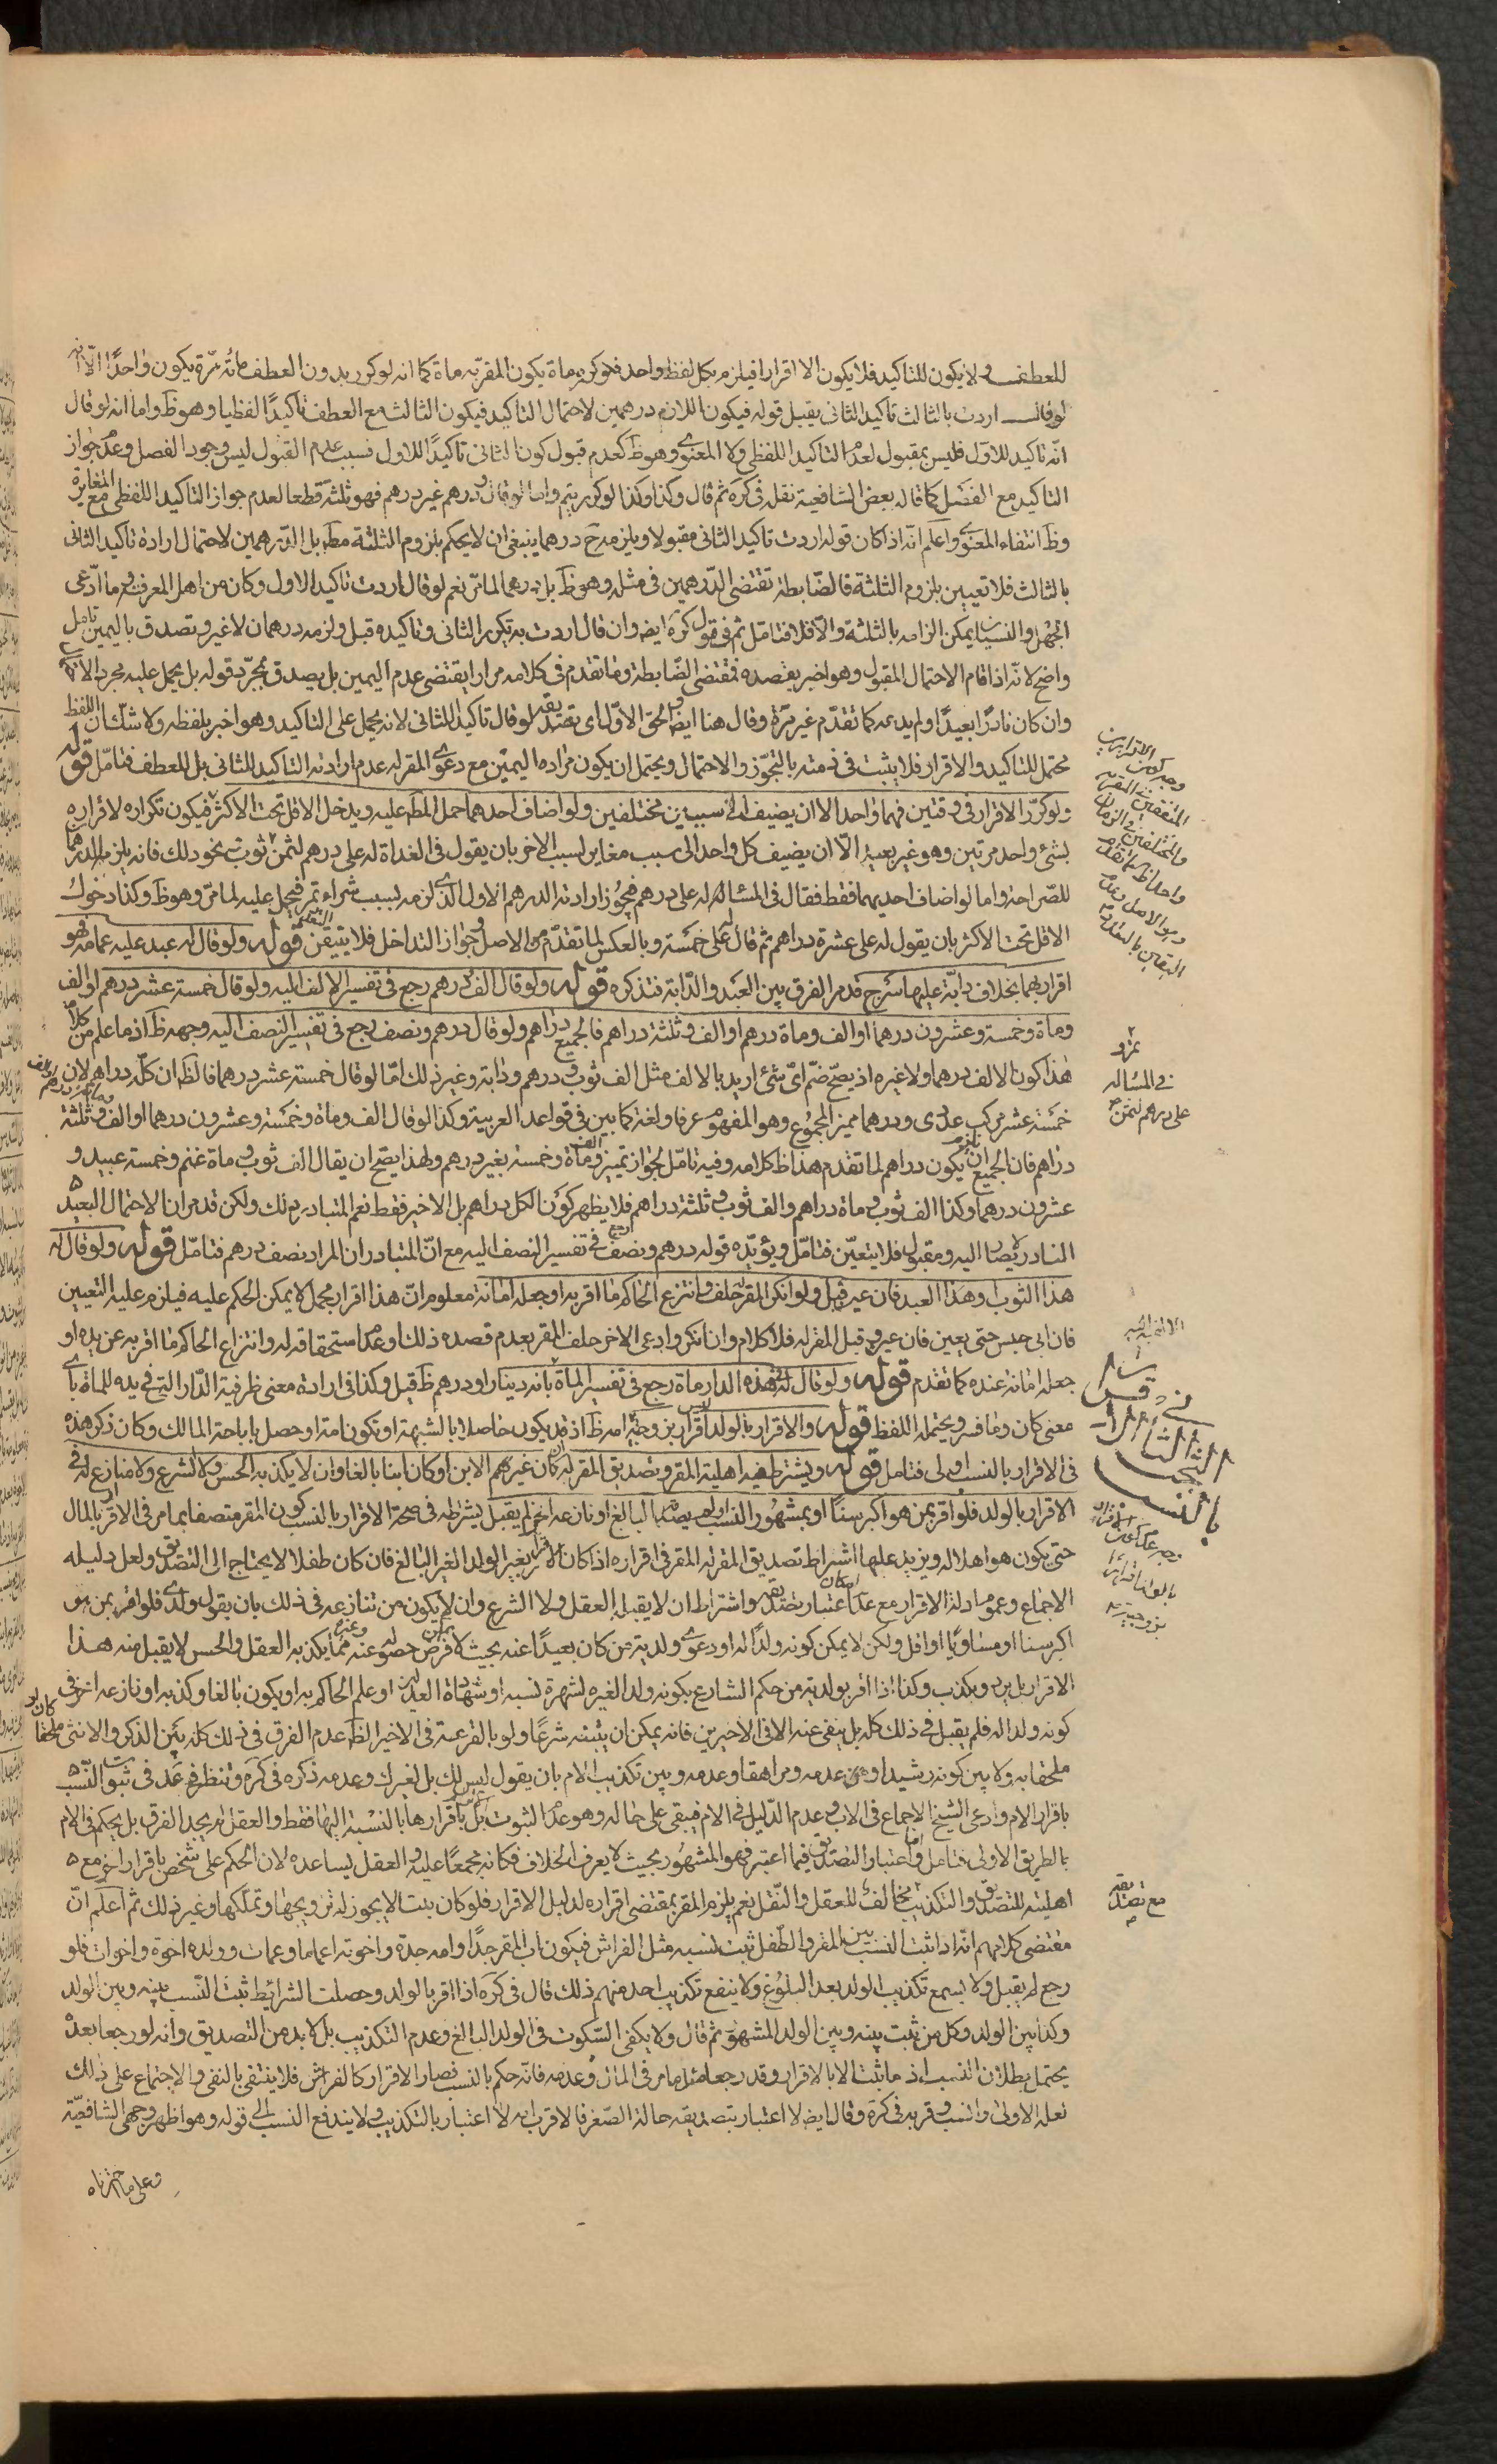 للعطف ولا يكون للتاكيد فلا يكون الا اقرارا فيلزم بكل لفظ واحد فلو كرره ماة يكون المقرّ به ماة كما انه لو كرر بدون العطف مائه مرّة يكون واحدًا الّا انه
لو قال اردت بالثالث تاكيد الثانى يقبل قوله فيكون اللازم درهمين لاحتمال التاكيد فيكون الثالث مع العطف تاكيدًا لفظيا وهو ظ واما انه لو قال
انّه تاكيد للاوّل فليس بمقبول لعدم التاكيد اللفظى ولا المعنوى وهو ظ كعدم قبول كون الثانى تاكيدًا للاول فسبب عدم القبول ليس وجود الفصل وعدم جواز
التاكيد مع الفصل كما قاله بعض الشافعية نقله فى كره ثم قال وكذا وكذا لو كرر بثم واما لو قال درهم غير درهم فهو ثلثة قطعا لعدم جواز التاكيد اللفظى مع المغايرة
وظ انتفاء المعنوى واعلم انّه اذا كان قوله اردت تاكيد الثانى مقبولا ويلزمه ح درهما ينبغى ان لا يحكم بلزوم الثلثة مط بل الدّرهمين لاحتمال ارادة تاكيد الثانى
بالثالث فلا تعيين بلزوم الثلثة فالضّابطة تقتضى الدّرهمين فى مثله وهو ظ بل درهما لما مرّ نعم لو قال اردت تاكيد الاول وكان من اهل المعرفة وما ادّعى
الجهل والنسيان يمكن الزامه بالثلثة والّا فلا فتامّل ثم فى قول كره ايضا وان قال اردت به تكرير الثانى وتاكيده قبل ولزمه درهمان لا غير وتصدق باليمين تامل
واضح لانّه اذا قام الاحتمال المقبول وهو اخبر بقصده فمقتضى الضّابطة وما تقدم فى كلامه مرارا يقتضى عدم اليمين بل يصدق بمجرّد قوله بل يحمل عليه مجرد الامكان
وان كان نادرًا بعيدًا ولم يدعه كما تقدّم غير مرّة وقال هنا ايضا والحق الاوّل اى تصديقه لو قال تاكيد للثانى لانه يحمل على التاكيد وهو اخبر بلفظه ولا شكّ ان اللفظ
محتمل للتاكيد والاقرار فلا يثبت فى ذمته بالتجوّز والاحتمال ويحتمل ان يكون مراده اليمين مع دعوى المقر له عدم ارادته التاكيد للثانى بل للعطف فتامّل قوله
ولو كرّر الاقرار فى وقتين فهما واحد الا ان يضيف الى سببين مختلفين ولو اضاف احدهما حمل المط عليه ويدخل الاقل تحت الاكثر فيكون تكراره لاقراره
بشئ واحد مرتين وهو غير بعيد الّا ان يضيف كل واحد الى سبب مغاير لسبب الاخر بان يقول فى الغداة له على درهم ثمن ثوب نحو ذلك فانه يلزم الدرهما
للصّراحة واما لو اضاف احديهما فقط فقال فى المسالة له على درهم فيجوز ارادته الدرهم الاول الذى لزمه بسبب شراء تمر فيحمل عليه لما مرّ وهو ظ وكذا دخول
الاقل تحت الاكثر بان يقول له على عشرة دراهم ثم قال له على خمسة وبالعكس لما تقدّم من الاصل وجواز التداخل فلا يتيقن قوله ولو قال له عبد عليه عمامة فهو
اقرار بهما بخلاف دابّة عليها سرج قد مر الفرق بين العبد والدّابة فتذكره قوله ولو قال الف درهم رجع فى تفسير الالف اليه ولو قال خمسة عشر درهم او الف
وماة وخمسة وعشرون درهما او الف وماة درهم او الف وثلثة دراهم فالجميع دراهم ولو قال درهم ونصف رجع فى تفسير النصف اليه وجهه ظ اذ ما علم من كلام
هذا كون الالف درهما ولا غيره اذ يصح ضمّ اىّ شئ اريد بالالف مثل الف ثوب ودرهم ودابة وغير ذلك امّا لو قال خمسة عشر درهما فالظ ان كلّه دراهم لان
خمسة عشر مركب عددى ودرهما مميز المجموع وهو المفهوم عرفا ولغة كما بين فى قواعد العربية وكذا لو قال الف وماة وخمسة وعشرون درهما او الف وثلثة
دراهم فان الجميع يكون دراهم لما تقدم هذا ظ كلامه وفيه تامّل لجواز تميز وماة وخمسة بغير درهم ولهذا يصح ان يقال الف ثوب وماة غنم وخمسة عبيد و
عشرون درهما وكذا الف ثوب وماة دراهم والف ثوب وثلثة دراهم فلا يظهر كون الكل دراهم بل الاخير فقط نعم المتبادر ذلك ولكن قد مر ان الاحتمال البعيد
النادر يصار اليه ومقبول فلا يتعيّن فتامّل ويؤيّده قوله درهم ونصف رجع فى تفسير النصف اليه مع انّ المتبادر ان المراد نصف درهم فتامّل قوله ولو قال له
هذا الثوب او هذا العبد فان عين قبل ولو انكر المقر له حلف وانتزع الحاكم ما اقر به او جعله امانة معلوم انّ هذا اقرار مجمل لا يمكن الحكم عليه فيلزم عليه التعيين
فان ابى حبس حتى يعين فان عين وقبل المقر له فلا كلام وان انكر وادعى الاخر حلف المقر بعدم قصده ذلك وعدم استحقاقه له وانتزاع الحاكم ما اقر به عن يده او
جعله امانة عنده كما تقدم قوله ولو قال له فى هذه الدار ماة رجع فى تفسير الماة بانه دينار او درهم ظ قبل وكذا فى ارادة معنى ظرفية الدّار التى فى يده للماة باى
معنى كان وما فسر ويحتمله اللفظ قوله والاقرار بالولد ليس اقرارا بزوجيّة امه ظ اذ قد يكون حاصلا بالشبهة او تكون امة او حصل باباحة المالك وكان ذكر هذه
فى الاقرار بالنسب اولى فتامل قوله ويشترط فيه اهلية المقر وتصديق المقر له ان كان غيرهم الابن او كان ابنا بالغا وان لا يكذبه الحس ولا الشرع ولا منازع له فى
الاقرار بالولد فلو اقر بمن هو اكبر سنّا او بمشهور النسب او لم يصدّقه البالغ او نازعه اخر لم يقبل يشترط فى صحة الاقرار بالنسب كون المقر متصفا بما مر فى الاقرار بالمال
حتى يكون هو اهلا له ويزيد عليها اشتراط تصديق المقر له المقر فى اقراره اذا كان الاقرار بغير الولد الغير البالغ فان كان طفلا لا يحتاج الى التصديق ولعل دليله
الاجماع وعموم ادلة الاقرار مع عدم امكان اعتبار تصديقه واشتراط ان لا يقبله العقل ولا الشرع وان لا يكون من تنازعه فى ذلك بان يقول ولدى فلو اقر بمن هو
اكبر سنا او مساويا او اقل ولكن لا يمكن كونه ولدًا له او دعوى ولدية من كان بعيدًا عنه بحيث لا فرض حصوله عنه ممّا يكذبه العقل والحس لا يقبل منه هذا
الاقرار بل يرد ويكذب وكذا اذا اقر بولدية من حكم الشارع بكونه ولد الغير لشهرة نسبه او شهادة العدلين او علم الحاكم به او يكون بالغا وكذبه او نازعه اخر فى
كونه ولدا له فلم يقبل فى ذلك كله بل ينفى عنه الا فى الاخيرين فانه يمكن ان يثبته شرعًا ولو بالقرعة فى الاخير الظ عدم الفرق فى ذلك كله بين الذكر والانثى
ملحقا به ولا بين كونه رشيدا وعدمه ومراهقا وعدمه وبين تكذيب الام بان يقول ليس لك بل لغيرك وعدمه ذكره فى كره وتنظر فى عد فى ثبوت النّسب
باقرار الام وادعى الشيخ الاجماع فى الاب وعدم الدّليل فى الام فيبقى على حاله وهو عدم الثبوت باقرارها بالنسبة اليها فقط والعقل لم يجد الفرق بل يحكم فى الام
بالطريق الاولى فتامل واعتبار التصديق فيما اعتبر فهو المشهور بحيث لا يعرف الخلاف فكانه مجمعًا عليه والعقل يساعده لان الحكم على شخص باقرار اخر مع
اهليته للتصديق والتكذيب مخالف للعقل والنّقل نعم يلزم المقر بمقتضى اقراره لدليل الاقرار فلو كان بنت لا يجوز له تزويجها وتملّكها وغير ذلك ثم اعلم انّ
مقتضى كلامهم انّه اذا ثبت النسب بين المقر والطّفل ثبت نسبه مثل الفراش فيكون اب المقر جدًا وامه جدة واخوته اعماما وعمات وولده اخوة واخوات فلو
رجع لم يقبل ولا يسمع تكذيب الولد بعد البلوغ ولا ينفع تكذيب احد منهم ذلك قال فى كره اذا اقر بالولد وحصلت الشرائط ثبت النّسب بينه وبين الولد
وكذا بين الولد وكل من ثبت بينه وبين الولد المشهور ثم قال ولا يكفى السّكوت فى الولد البالغ وعدم التكذيب بل لا بد من التصديق وانه لو رجعا بعده
يحتمل بطلان النسب اذ ما ثبت الا بالاقرار وقد رجعا مثل ما مر فى المال وعدمه فانّه حكم بالنسب فصار الاقرار كالفراش فلا ينتفى بالنفى والاجتماع على ذلك
لعله الاولى وانسب وقربه فى كره وقال ايضا لا اعتبار بتصديقه حالة الصّغر فالاقرب انه لا اعتبار بالتكذيب ولا يندفع النسب الى قوله وهو اظهر وجهى الشافعيّة
وعلى ما اخترناه
وجه كون الاقرارين
المتفقين فى المقر به
والمختلفين فى الزمان
واحدا ظ كما تقدم
وهو الاصل وعدم
اليقين بالتعدد
فى المسالة
على درهم ثمن
بالنسب
بزوجية
مع تصديقه